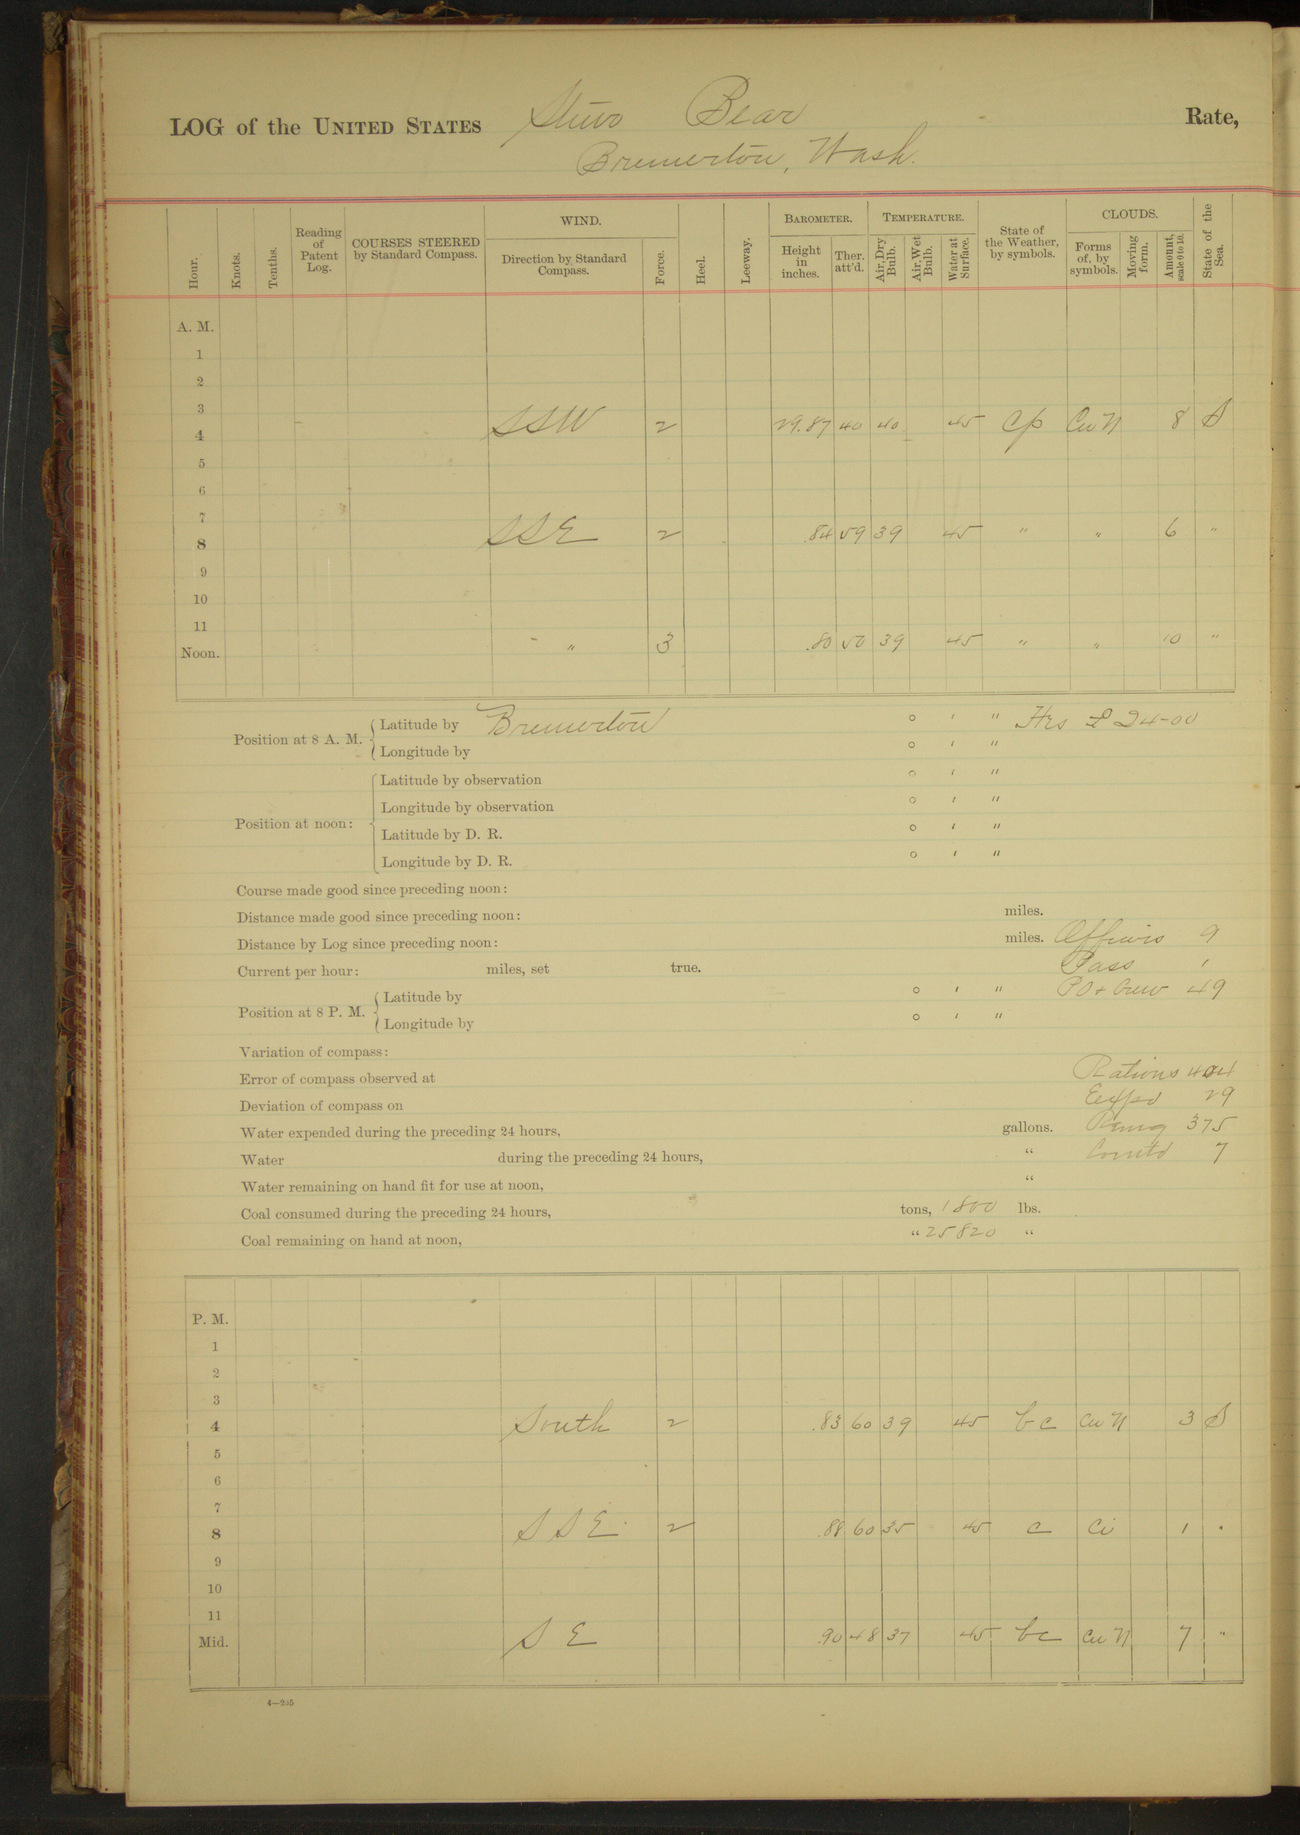 LOG of the UNITED STATES Bear Rate,
Bremerton, Wash.
Hour. Knots. Tenths. Reading of Patent Log. COURSES STEERED by Standard Compass. WIND. Direction by Standard Compass. Force. Heel. Leeway. BAROMETER. Height in inches. Ther. att'd. TEMPERATURE. Air, Dry Bulb. Air, Wet Bulb. Water at Surface. State of the Weather, by symbols. CLOUDS. Forms of, by symbols. Moving form. Amount, scale 0 to 10. State of the Sea.
A. M.
1
2
3
4 SSW 2 29.87 40 40 45 cp Cu N 8 S
5
6
7
8 SSE 2 .84 59 39 45 " " 6 "
9
10
11
Noon. " 3 .80 50 39 45 " " 10 "
Position at 8 A. M. Latitude by Bremerton ° ' " Hrs 24-00
Longitude by ° ' "
Position at noon: Latitude by observation ° ' "
Longitude by observation ° ' "
Latitude by D. R. ° ' "
Longitude by D. R. ° ' "
Course made good since preceding noon:
Distance made good since preceding noon: miles.
Distance by Log since preceding noon: miles. Officers 9
Current per hour: miles, set true. Pass 1
Position at 8 P. M. Latitude by ° ' " PO + Crew 49
Longitude by ° ' "
Variation of compass:
Error of compass observed at Rations 404
Deviation of compass on Expd 29
Water expended during the preceding 24 hours, gallons. Remg 375
Water during the preceding 24 hours, " Comtd 7
Water remaining on hand fit for use at noon, "
Coal consumed during the preceding 24 hours, tons, 1800 lbs.
Coal remaining on hand at noon, " 25820 "
P. M.
1
2
3
4 South 2 .83 60 39 45 bc Cu N 3 S
5
6
7
8 SSE 2 .88 60 35 45 c Ci 1 "
9
10
11
Mid. SE .90 48 37 45 bc Cu N 7 "
4—205